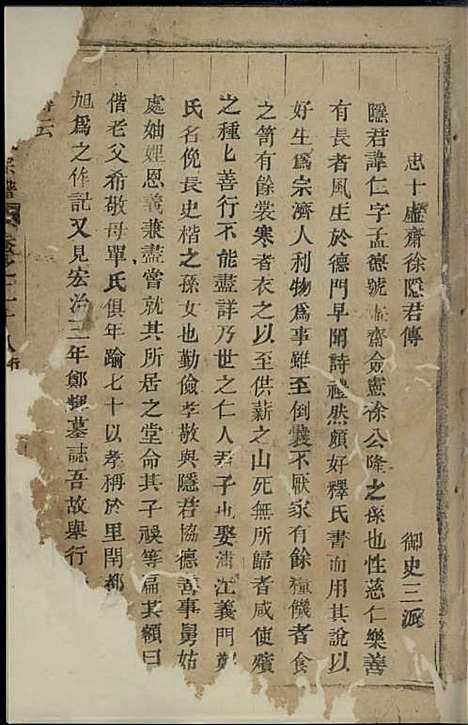 忠十虛齋徐隱君傳 御史三派
隱君諱仁字孟德號虛齋僉憲徐公隆之孫也性慈仁樂善
有長者風生於德門早聞詩禮然頗好釋氏書而用其說以
好生爲宗濟人利物爲事雖至倒囊不厭家有餘糧饑者食
之笥有餘裳寒者衣之以至供薪之山死無所歸者咸使殯
之種匕善行不能盡詳乃世之仁人君子也娶浦江義門鄭
氏名俛長史楷之孫女也勤儉孝敬與隱君協德善事舅姑
處妯娌恩義兼盡嘗就其所居之堂命其子禩等扁其額曰
偕老父希敬母單氏俱年踰七十以孝稱於里閈都
旭爲之作記又見宏治三年鄭墓誌吾故舉行
云
宗譜